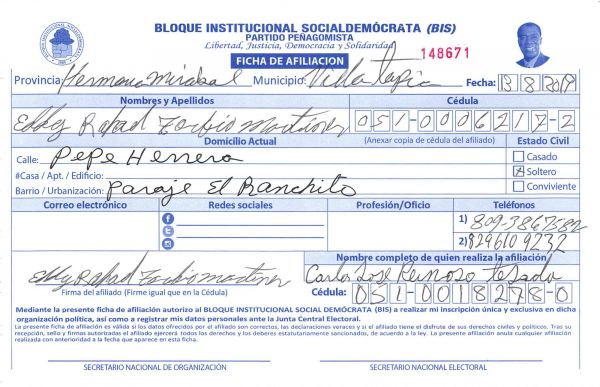 BLOQUE INSTITUCIONAL SOCIALDEMÓCRATA (BIS)
PARTIDO PEÑAGOMISTA
Libertad, Justicia, Democracia y Solidaridad
FICHA DE AFILIACION 148671
Provincia: Hermana Mirabal Municipio: Villa Tapia Fecha: 13/8/2019
Nombres y Apellidos Cédula
Eddy Rafael Toribio Martínez 051-0006217-2
Domicilio Actual (Anexar copia de cédula del afiliado) Estado Civil
Calle: PePe Herrera Casado
#Casa / Apt. / Edificio: X Soltero
Barrio / Urbanización: Paraje El Ranchito Conviviente
Correo electrónico Redes sociales Profesión/Oficio Teléfonos
1) 809-3867582
2) 829 610 9232
Nombre completo de quien realiza la afiliación
Eddy Rafael Toribio Martinez Carlos Jose Reinoso Tejada
Firma del afiliado (Firme igual que en la Cédula) Cédula: 051-0018278-0
Mediante la presente ficha de afiliación autorizo al BLOQUE INSTITUCIONAL SOCIAL DEMÓCRATA (BIS) a realizar mi inscripción única y exclusiva en dicha
organización política, así como a registrar mis datos personales ante la Junta Central Electoral.
La presente ficha de afiliación es válida si los datos ofrecidos por el afiliado son correctos, las declaraciones veraces y si el afiliado tiene el disfrute de sus derechos civiles y políticos. Tras su
recepción, sello y firmas autorizadas el afiliado ejercerá todos los derechos y los deberes estatutariamente sancionados, de acuerdo a la ley. La presente afiliación anula cualquier afiliación
realizada con anterioridad a la fecha que aparece en esta ficha.
SECRETARIO NACIONAL DE ORGANIZACIÓN SECRETARIO NACIONAL ELECTORAL